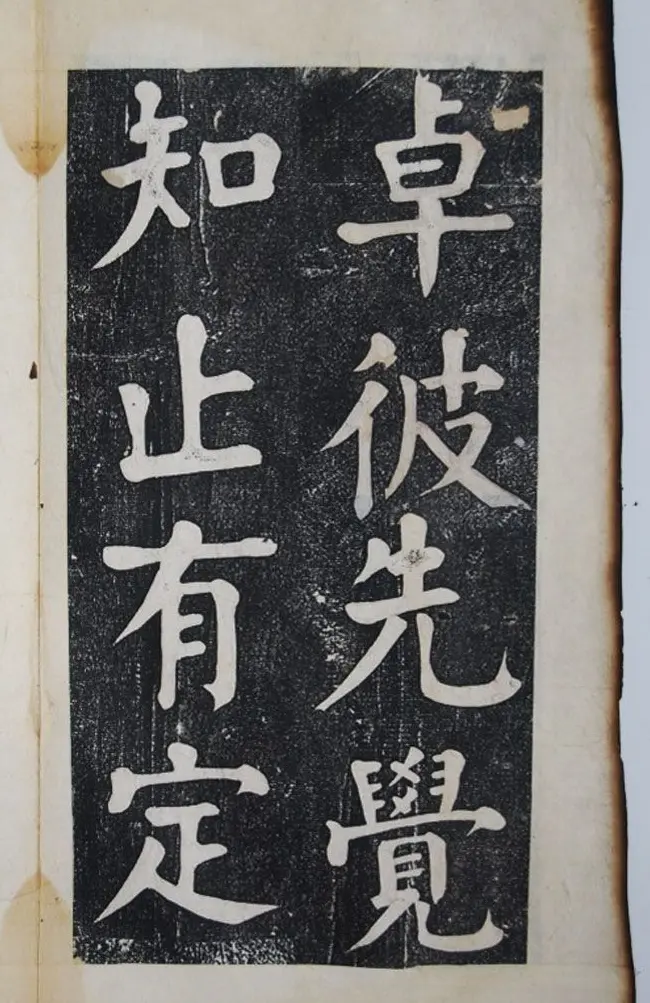 卓彼先覺
知止有定